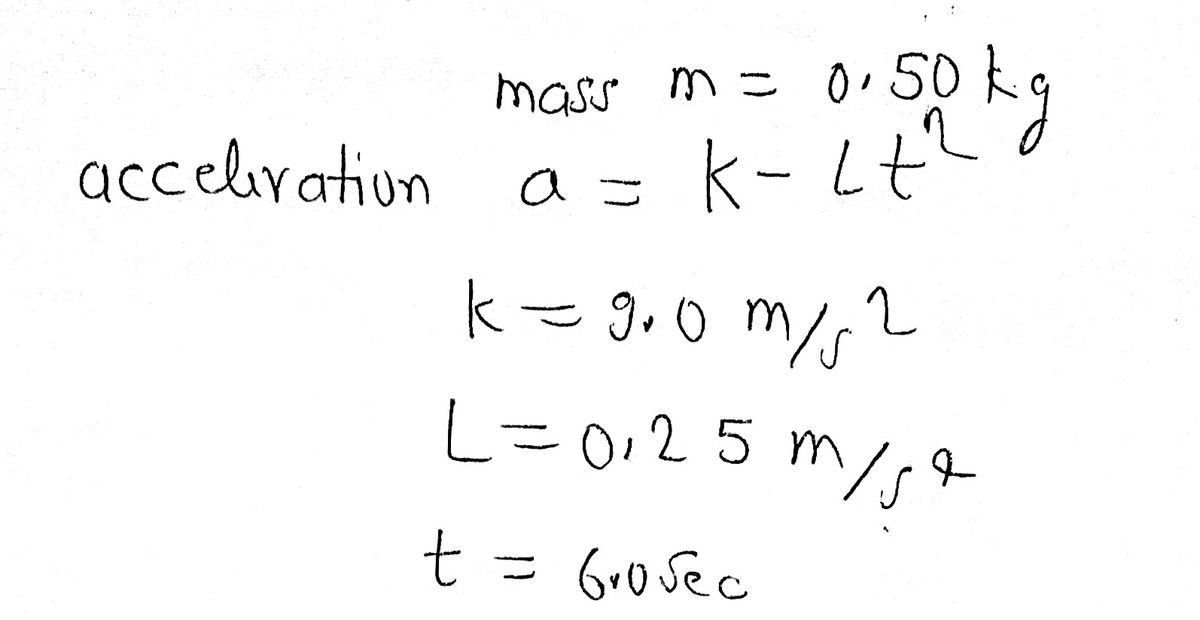 mass m = 0.50 kg
acceleration a = k - Lt²
k = 9.0 m/s²
L = 0.25 m/s⁴
t = 6.0 sec